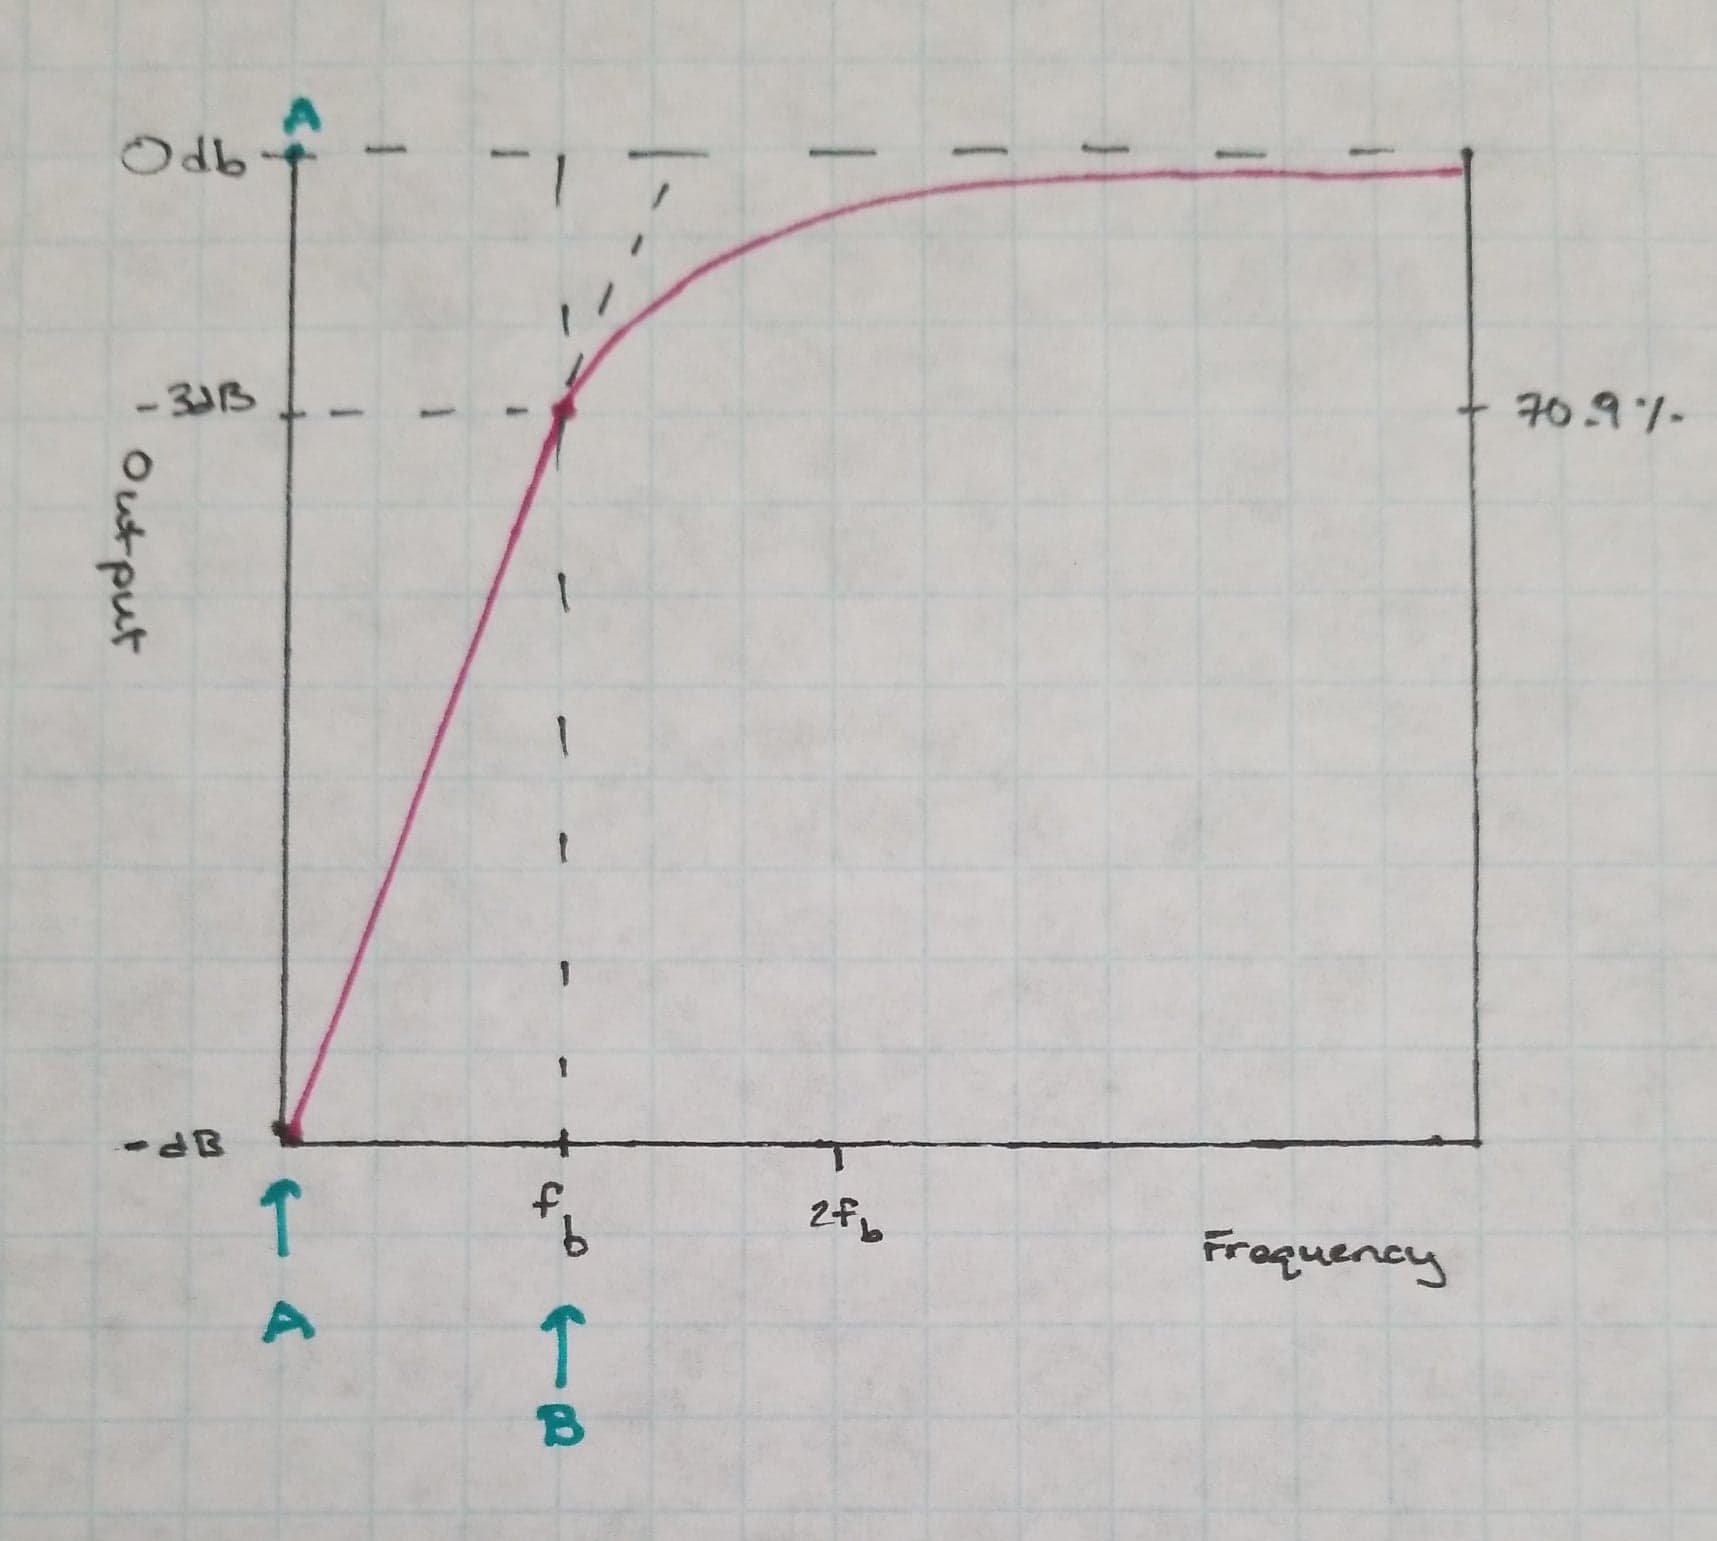 A
0db
-3dB
70.9%
Output
-dB
fb
2fb
Frequency
A
B